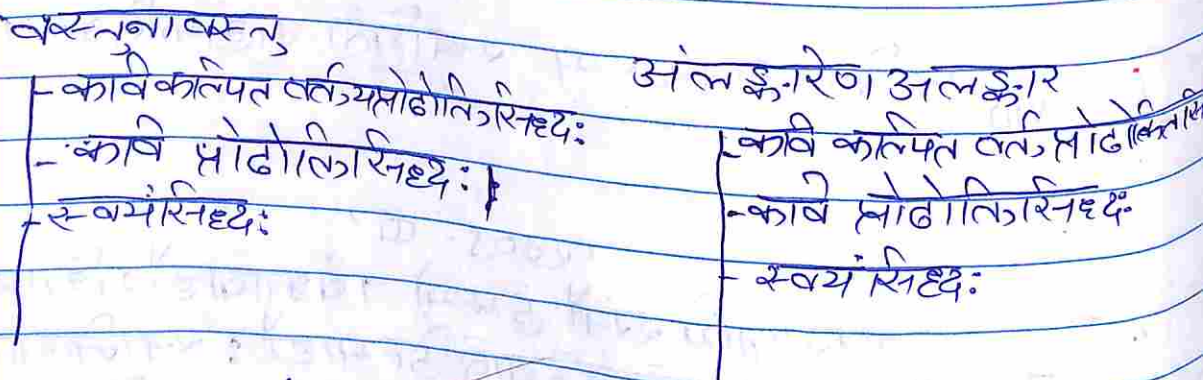 वस्तुना वस्तु
- कवि कल्पित वर्तृयप्रोढोक्तिसिध्दः
- कवि प्रोढोक्तिसिध्दः
- स्वयंसिध्दः
अंलङ्कारेण अलङ्कार
- कवि कल्पित वर्तृ प्रोढोक्तिसि
- कवि प्रोढोक्तिसिध्दः
- स्वयंसिध्दः